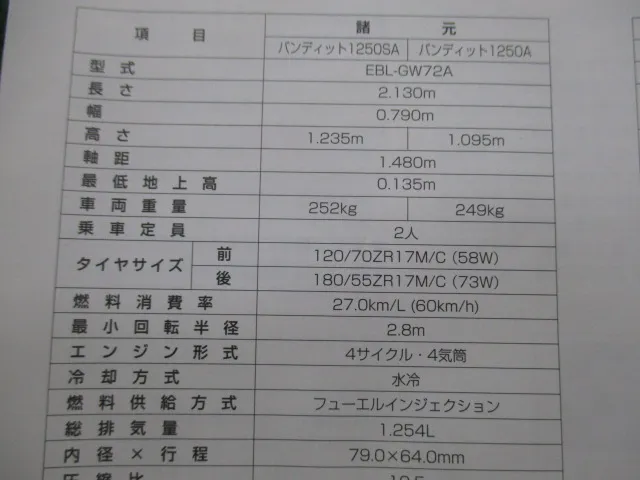 項目 諸元
バンディット1250SA バンディット1250A
型式 EBL-GW72A
長さ 2.130m
幅 0.790m
高さ 1.235m 1.095m
軸距 1.480m
最低地上高 0.135m
車両重量 252kg 249kg
乗車定員 2人
タイヤサイズ 前 120/70ZR17M/C (58W)
後 180/55ZR17M/C (73W)
燃料消費率 27.0km/L (60km/h)
最小回転半径 2.8m
エンジン形式 4サイクル・4気筒
冷却方式 水冷
燃料供給方式 フューエルインジェクション
総排気量 1.254L
内径×行程 79.0×64.0mm
圧縮比 10.5